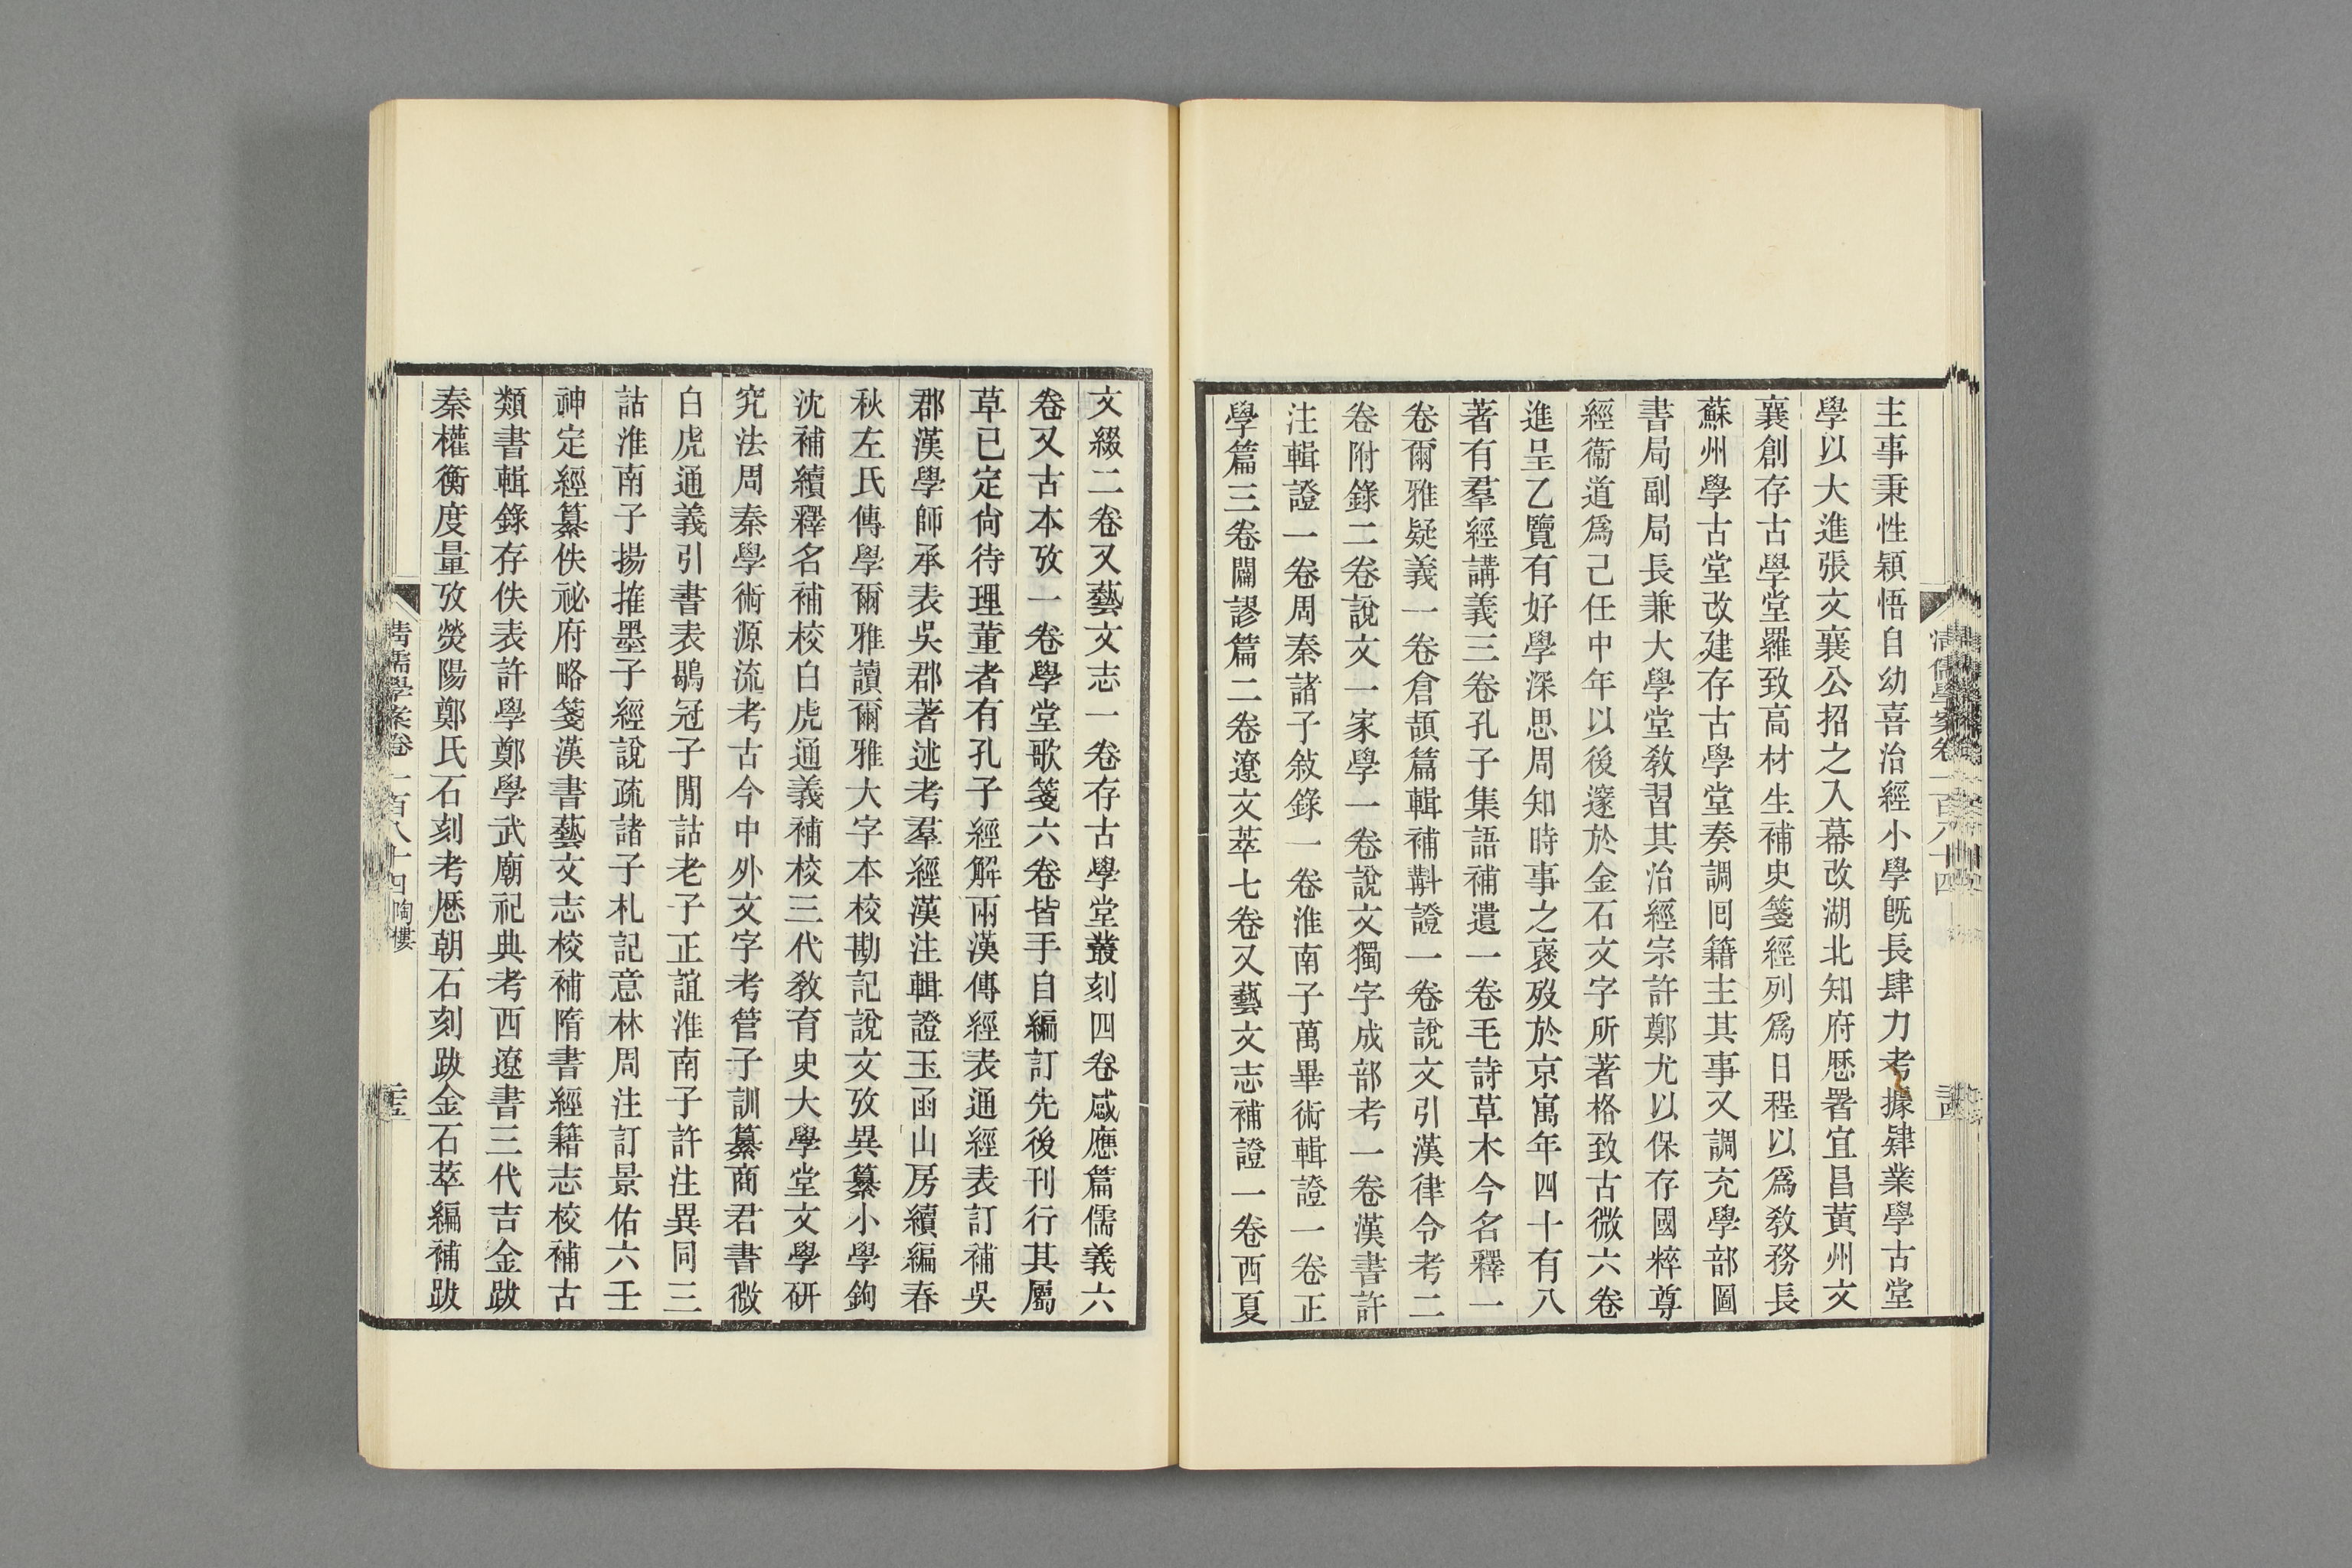 主事秉性穎悟自幼喜治經小學旣長肆力考據肄業學古堂
學以大進張文襄公招之入幕改湖北知府歷署宜昌黃州文
襄創存古學堂羅致高材生補史箋經列爲日程以爲敎務長
蘇州學古堂改建存古學堂奏調囘籍主其事又調充學部圖
書局副局長兼大學堂敎習其治經宗許鄭尤以保存國粹尊
經衞道爲己任中年以後邃於金石文字所著格致古微六卷
進呈乙覽有好學深思周知時事之褒歿於京寓年四十有八
著有羣經講義三卷孔子集語補遺一卷毛詩草木今名釋一
卷爾雅疑義一卷倉頡篇輯補斠證一卷說文引漢律令考二
卷附錄二卷說文一家學一卷說文獨字成部考一卷漢書許
注輯證一卷周秦諸子敍錄一卷淮南子萬畢術輯證一卷正
學篇三卷闢謬篇二卷遼文萃七卷又藝文志補證一卷西夏
文綴二卷又藝文志一卷存古學堂叢刻四卷感應篇儒義六
卷又古本攷一卷學堂歌箋六卷皆手自編訂先後刊行其屬
草已定尙待理董者有孔子經解兩漢傳經表通經表訂補吳
郡漢學師承表吳郡著述考羣經漢注輯證玉函山房續編春
秋左氏傳學爾雅讀爾雅大字本校勘記說文攷異纂小學鉤
沈補續釋名補校白虎通義補校三代敎育史大學堂文學硏
究法周秦學術源流考古今中外文字考管子訓纂商君書微
白虎通義引書表鶡冠子閒詁老子正誼淮南子許注異同三
詁淮南子揚搉墨子經說疏諸子札記意林周注訂景佑六壬
神定經纂佚祕府略箋漢書藝文志校補隋書經籍志校補古
類書輯錄存佚表許學鄭學武廟祀典考西遼書三代吉金跋
秦權衡度量攷熒陽鄭氏石刻考歷朝石刻跋金石萃編補跋
清儒學案卷一百八十四 陶樓